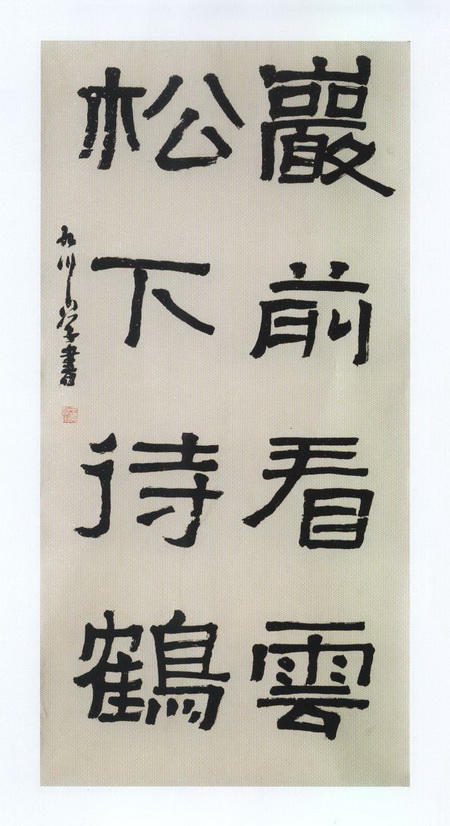 巖前看雲
松下待鶴